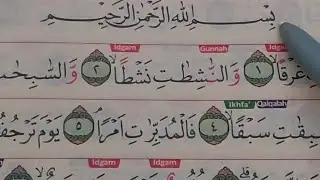 بِسْمِ اللّٰهِ الرَّحْمٰنِ الرَّحِيْمِ
Idgam Gunnah Idgam
غَرْقًاۙ ١ وَّالنّٰشِطٰتِ نَشْطًاۙ ٢ وَّالسّٰبِحٰتِ
Ikhfa' Qalqalah
سَبْقًاۙ ٤ فَالْمُدَبِّرٰتِ اَمْرًاۘ ٥ يَوْمَ تَرْجُفُ
Idgam Idgam